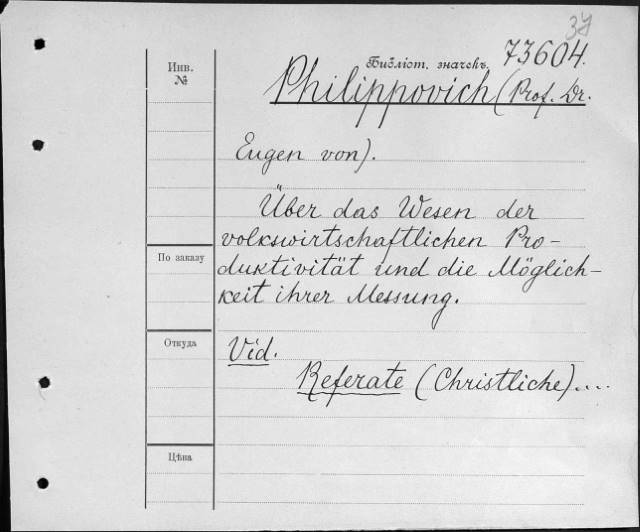 39
Библіот. значекъ. 73604.
Инв. №
Philippovich (Prof. Dr.
Eugen von).
Über das Wesen der
volkswirtschaftlichen Pro-
duktivität und die Möglich-
keit ihrer Messung.
По заказу
Откуда
Vid.
Referate (Christliche)....
Цѣна